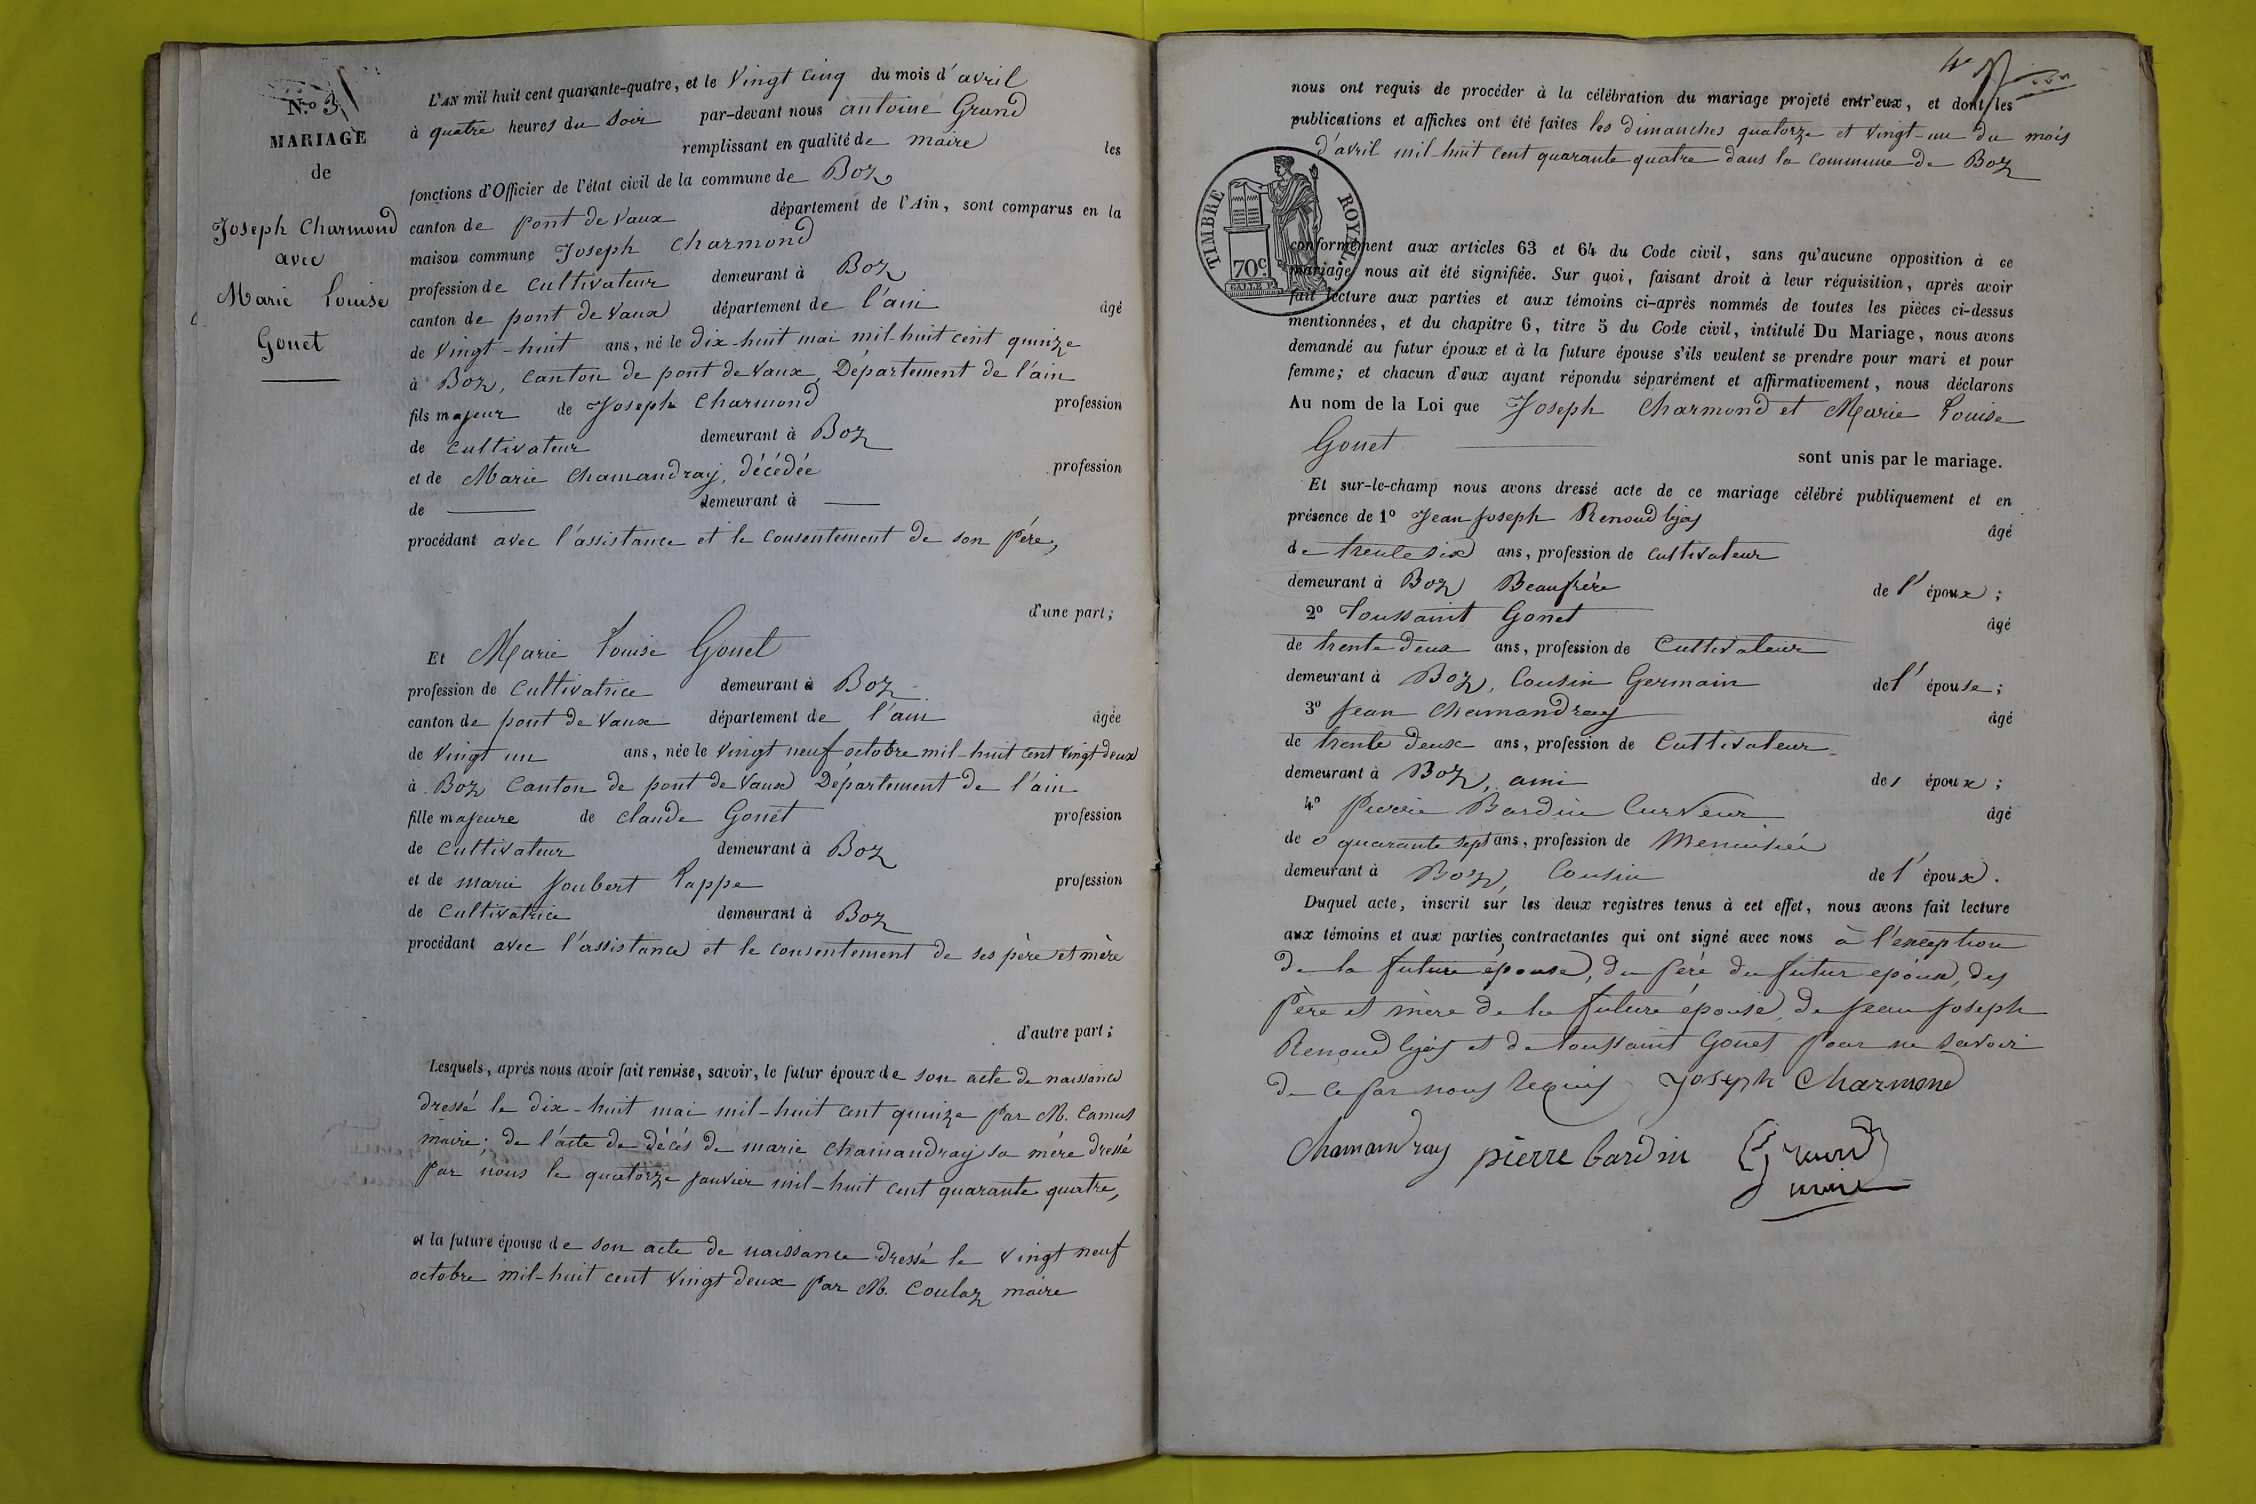 N.o 3
MARIAGE
de
Joseph Charmond
avec
Marie Louise
Gonet
L'AN mil huit cent quarante-quatre, et le Vingt Cinq du mois d'avril
à quatre heures du Soir par-devant nous antoine Grand
remplissant en qualité de maire les
fonctions d'Officier de l'état civil de la commune de Boz
canton de pont de Vaux département de l'Ain, sont comparus en la
maison commune Joseph Charmond
profession de Cultivateur demeurant à Boz
canton de pont de Vaux département de l'ain âgé
de Vingt-huit ans, né le dix-huit mai mil-huit cent quinze
à Boz, Canton de pont de Vaux, Département de l'ain
fils majeur de Joseph Charmond profession
de Cultivateur demeurant à Boz
et de Marie Chamandray, décédée profession
de — demeurant à —
procédant avec l'assistance et le consentement de son père,
d'une part;
Et Marie Louise Gonet
profession de Cultivatrice demeurant à Boz
canton de pont de Vaux département de l'ain âgée
de Vingt un ans, née le Vingt neuf octobre mil-huit cent vingt deux
à Boz Canton de pont de Vaux Département de l'ain
fille majeure de Claude Gonet profession
de Cultivateur demeurant à Boz
et de marie Joubert Pappe profession
de Cultivatrice demeurant à Boz
procédant avec l'assistance et le consentement de ses père et mère
d'autre part;
Lesquels, après nous avoir fait remise, savoir, le futur époux de son acte de naissance
dressé le dix-huit mai mil-huit cent quinze par M. Camus
maire; de l'acte de décés de marie Chamandray sa mère dressé
par nous le quatorze janvier mil-huit cent quarante quatre,
et la future épouse de son acte de naissance dressé le vingt neuf
octobre mil-huit cent vingt deux par M. Coulaz maire
4e
nous ont requis de procéder à la célébration du mariage projeté entr'eux, et dont les
publications et affiches ont été faites les dimanches quatorze et vingt-un du mois
d'avril mil-huit cent quarante quatre dans la Commune de Boz
TIMBRE ROYAL
70c
conformément aux articles 63 et 64 du Code civil, sans qu'aucune opposition à ce
mariage nous ait été signifiée. Sur quoi, faisant droit à leur réquisition, après avoir
fait lecture aux parties et aux témoins ci-après nommés de toutes les pièces ci-dessus
mentionnées, et du chapitre 6, titre 5 du Code civil, intitulé Du Mariage, nous avons
demandé au futur époux et à la future épouse s'ils veulent se prendre pour mari et pour
femme; et chacun d'eux ayant répondu séparément et affirmativement, nous déclarons
Au nom de la Loi que Joseph Charmond et Marie Louise
Gonet
sont unis par le mariage.
Et sur-le-champ nous avons dressé acte de ce mariage célébré publiquement et en
présence de 1o Jean Joseph Renoud lyas âgé
de trente six ans, profession de Cultivateur
demeurant à Boz Beaufrère de l'époux;
2o Toussaint Gonet âgé
de trente deux ans, profession de Cultivateur
demeurant à Boz, Cousin Germain de l'épouse;
3o Jean Chamandray âgé
de trente deux ans, profession de Cultivateur
demeurant à Boz, ami des époux;
4o Pierre Bardin Curveur âgé
de quarante sept ans, profession de Menuisier
demeurant à Boz, Cousin de l'époux.
Duquel acte, inscrit sur les deux registres tenus à cet effet, nous avons fait lecture
aux témoins et aux parties contractantes qui ont signé avec nous à l'exception
de la future épouse, du père du futur époux, des
père et mère de la future épouse, de Jean Joseph
Renoud lyas et de toussaint Gonet pour ne savoir
de ce par nous requis Joseph Charmond
Chamandray pierre bardin Grand
maire